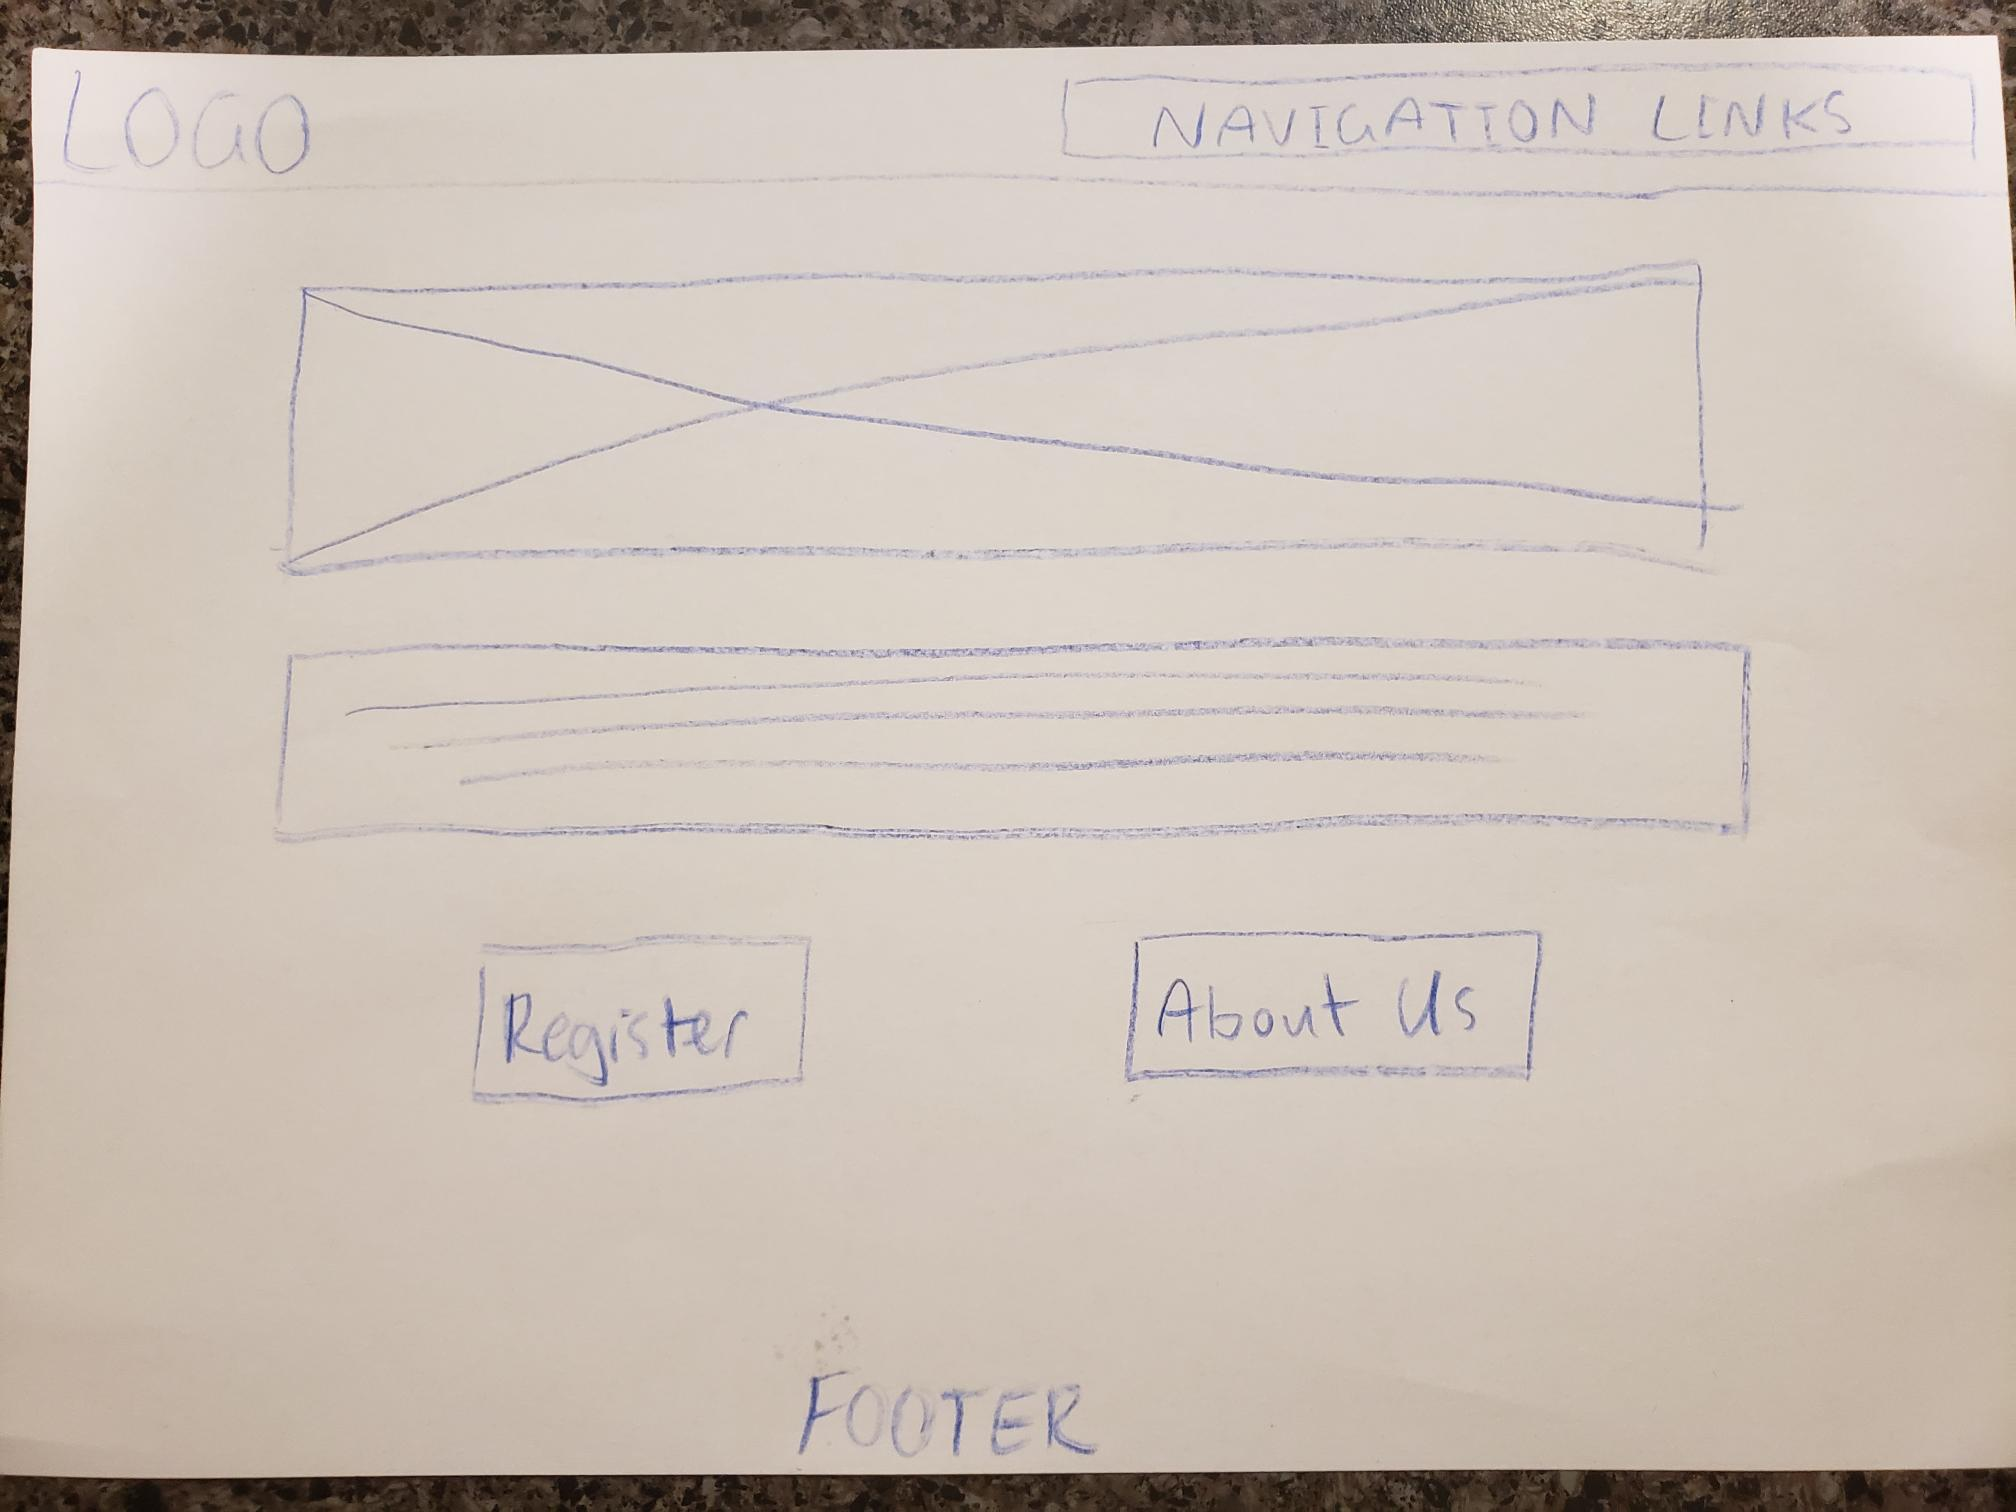 LOGO
NAVIGATION LINKS
Register
About Us
FOOTER